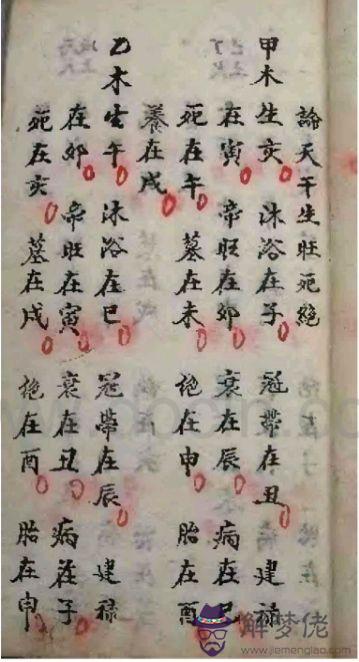 論天干生旺死絕
甲木生亥 沐浴在子 冠帶在丑 建祿
在寅 帝旺在卯 衰在辰 病在巳
死在午 墓在未 絕在申 胎在酉
養在戌
乙木生午 沐浴在巳 冠帶在辰 建祿
在卯 帝旺在寅 衰在丑 病在子
死在亥 墓在戌 绝在酉 胎在申
解梦佬
www.jiemenglao.com